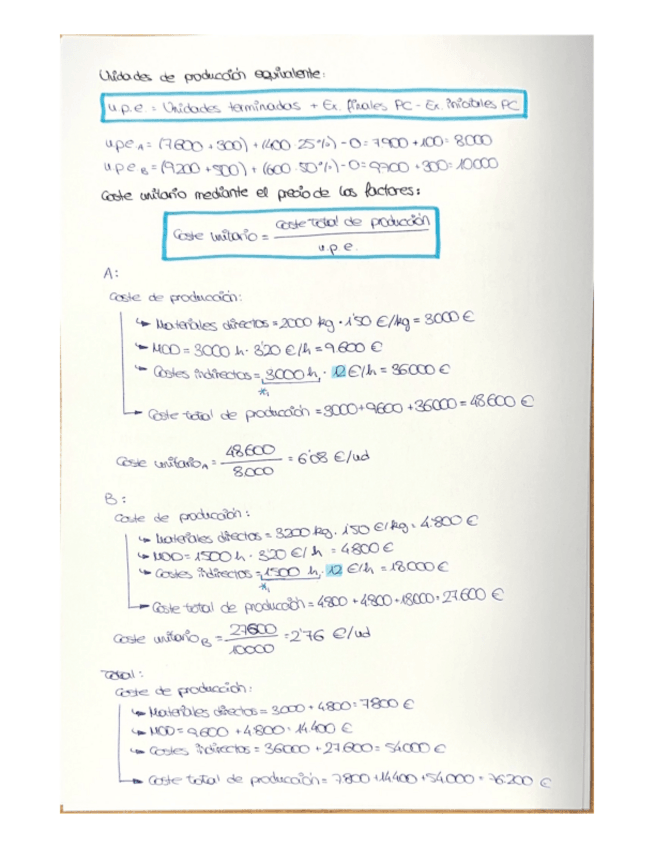 Unidades de producción equivalente:
u.p.e = Unidades terminadas + Ex. finales PC - Ex. iniciales PC
upe A = (7600 + 300) + (400 · 25%) - 0 = 7900 + 100 = 8000
upe B = (9200 + 500) + (600 · 50%) - 0 = 9700 + 300 = 10000
Coste unitario mediante el precio de los factores:
Coste unitario = Coste total de producción / u.p.e.
A:
Coste de producción:
↳ Materiales directos = 2000 kg · 1'50 €/kg = 3000 €
↳ MOD = 3000 h · 3'20 €/h = 9.600 €
↳ Costes indirectos = 3000 h · 12 €/h = 36000 €
*₁
→ Coste total de producción = 3000 + 9600 + 36000 = 48600 €
Coste unitario A = 48600 / 8000 = 6'08 €/ud
B:
Coste de producción:
↳ Materiales directos = 3200 kg · 1'50 €/kg = 4.800 €
↳ MOD = 1500 h · 3'20 €/h = 4800 €
↳ Costes indirectos = 1500 h · 12 €/h = 18000 €
*₁
→ Coste total de producción = 4800 + 4800 + 18000 = 27600 €
Coste unitario B = 27600 / 10000 = 2'76 €/ud
Total:
Coste de producción:
↳ Materiales directos = 3000 + 4800 = 7800 €
↳ MOD = 9600 + 4800 = 14400 €
↳ Costes indirectos = 36000 + 27600 = 54000 €
→ Coste total de producción = 7800 + 14400 + 54000 = 76.200 €